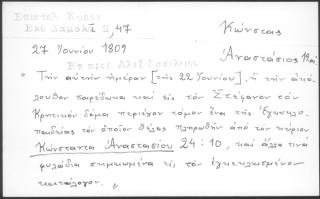 Επιστολ Κοραη
Εκδ Δαμαλᾶ 2, 47
Κώνστας
27 Ἰουνίου 1809
Ἀναστάσιος
"Τὴν αὐτὴν ἡμέραν [τὴν 22 Ἰουνίου], ἢ τὴν ἀκό
λουθον παρέδωκα καὶ εἰς τὸν Στέφανον τὸν
Κρητικὸν δέμα περιέχον τόμον ἕνα τῆς Ἐγκυκλο
παιδείας τὸν ὁποῖον θέλεις πληρωθῆν ἀπὸ τὸν κύριον
Κώνσταντα Ἀναστασίου 24:10, καὶ ἄλλα τινὰ
φυλλάδια σημειωμένα εἰς τὸν ἐγκεκλεισμένον
κατάλογον."